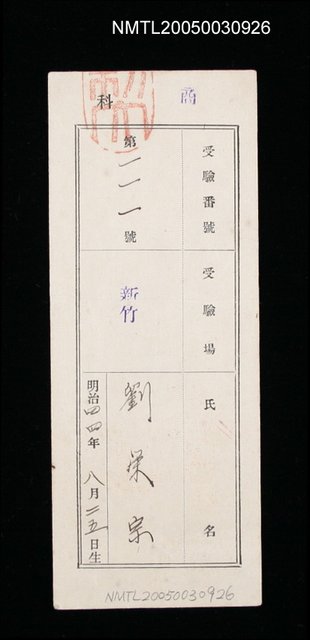 NMTL20050030926
商科
受驗番號
第一一一號
受驗場
新竹
氏名
劉榮宗
明治四四年八月二五日生
NMTL20050030926